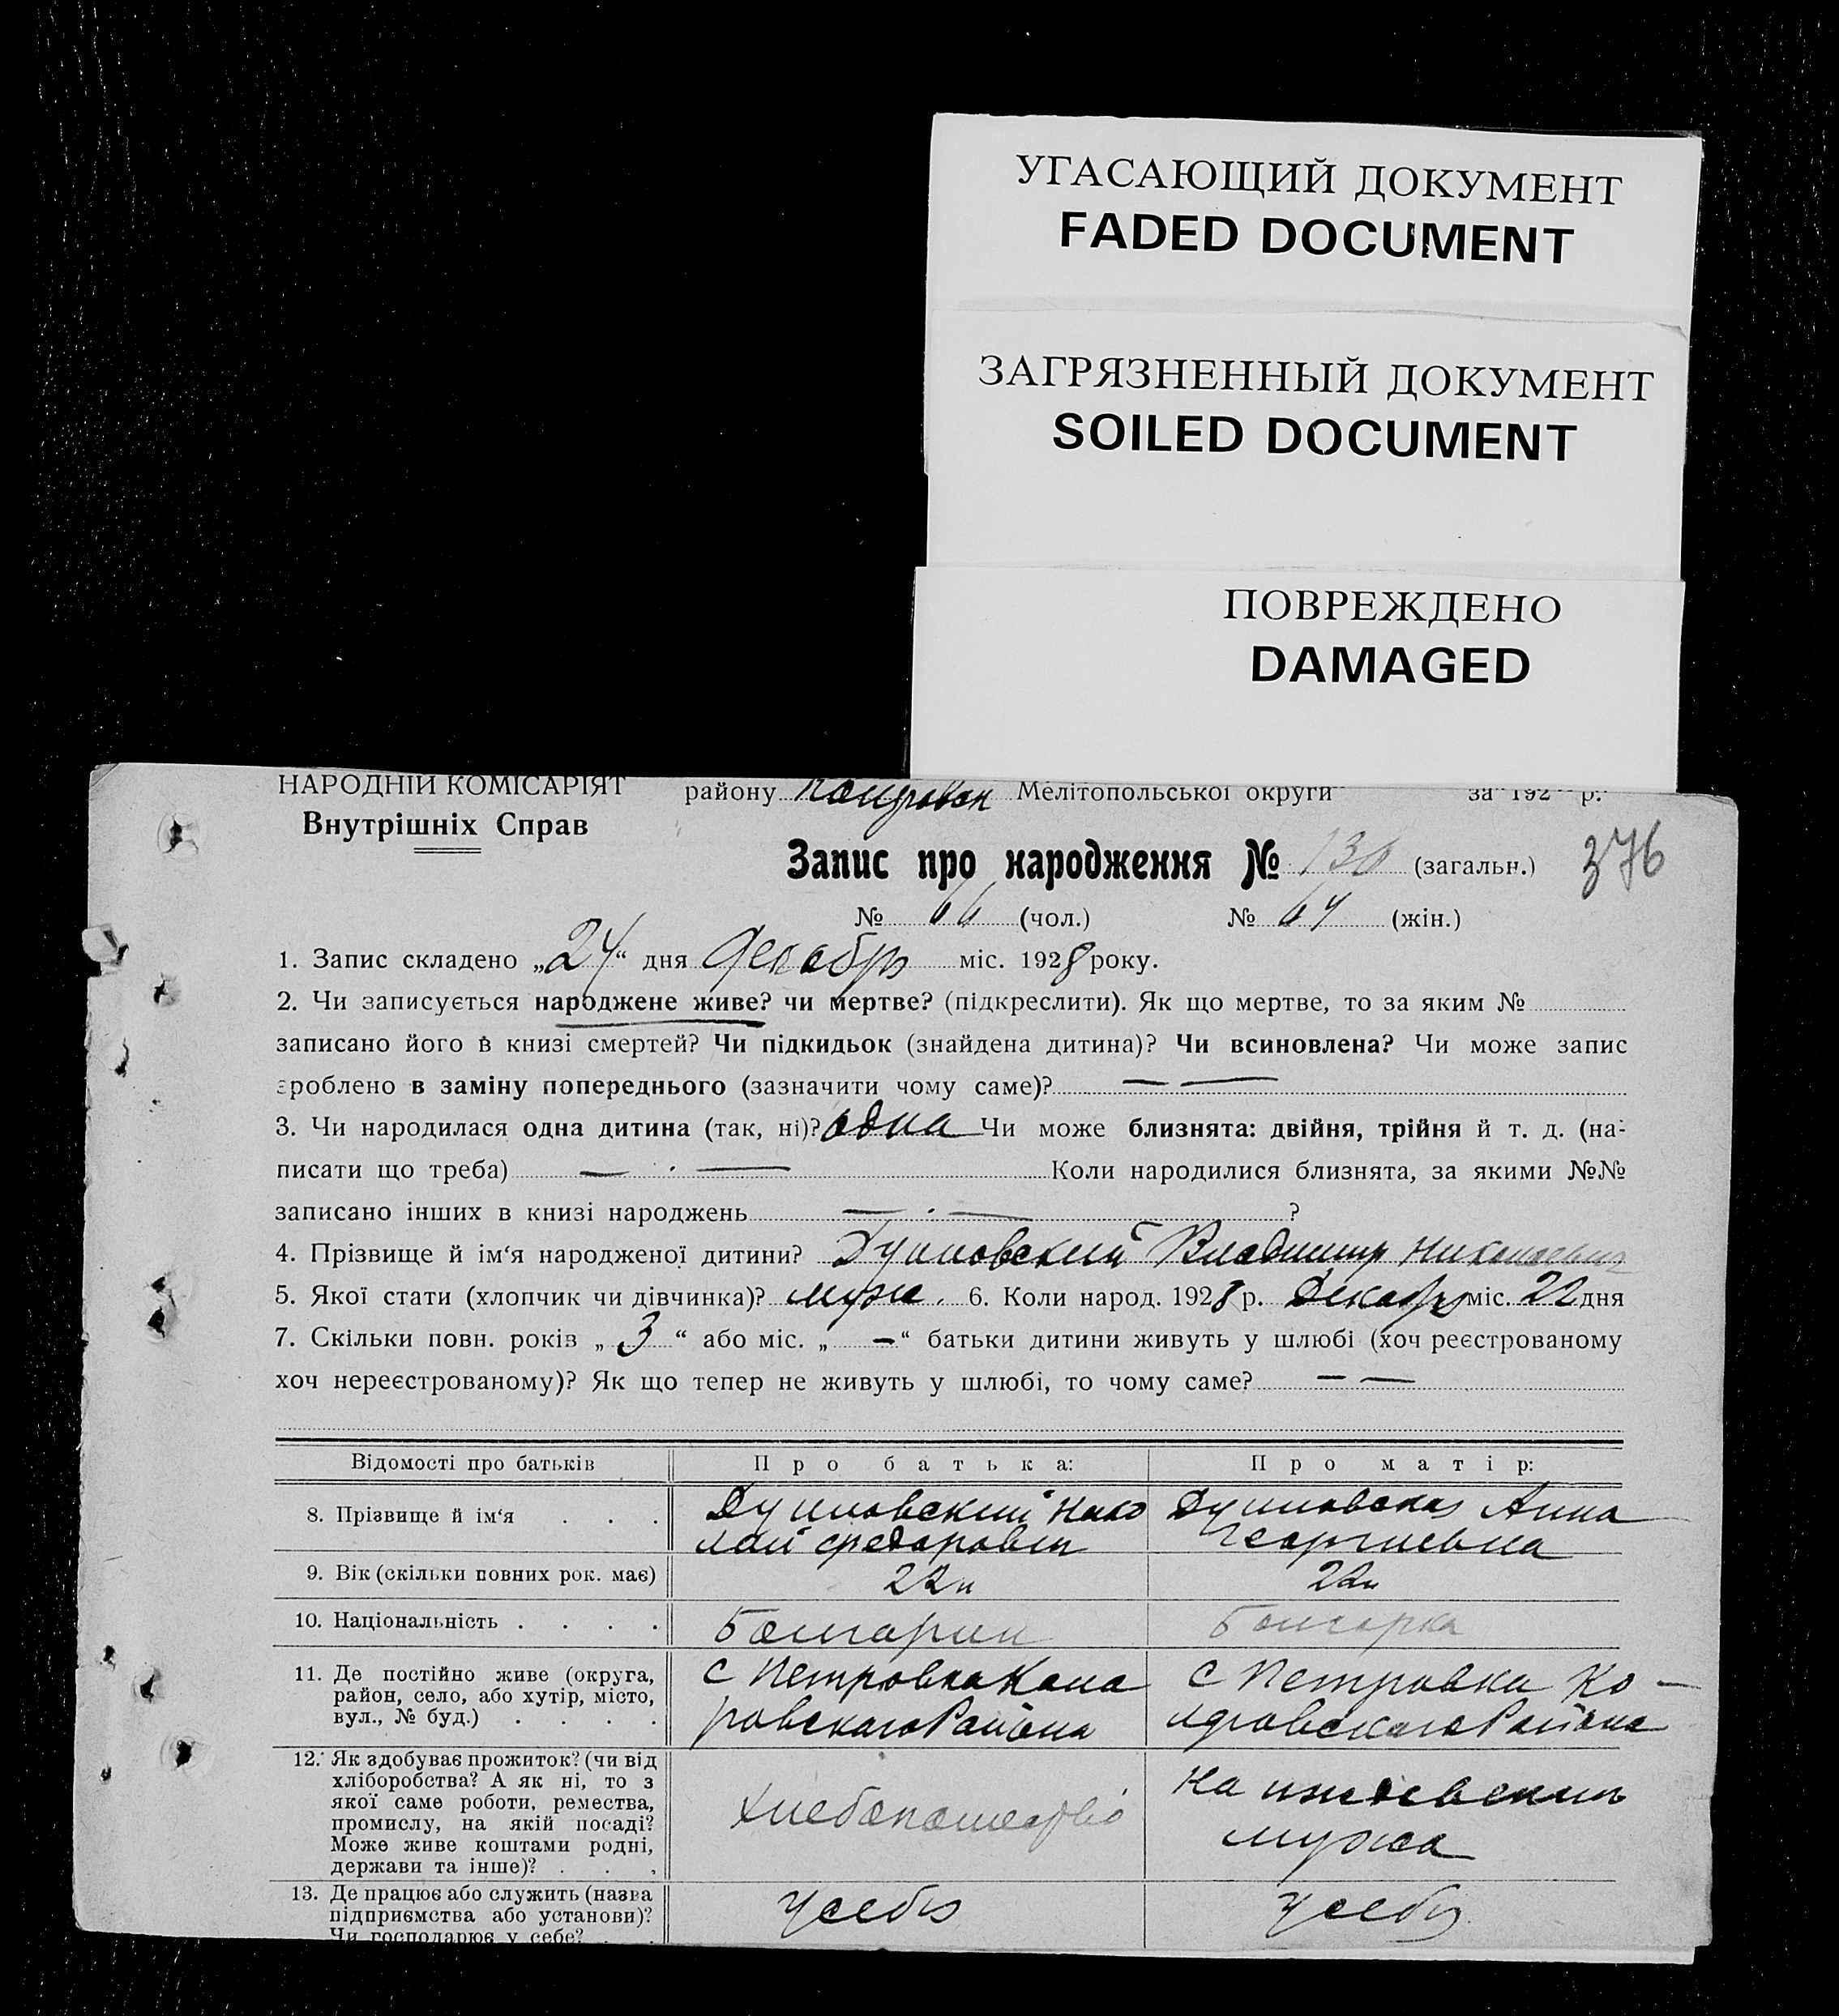 УГАСАЮЩИЙ ДОКУМЕНТ
FADED DOCUMENT
ЗАГРЯЗНЕННЫЙ ДОКУМЕНТ
SOILED DOCUMENT
ПОВРЕЖДЕНО
DAMAGED
НАРОДНІЙ КОМІСАРІЯТ
Внутрішніх Справ
району Мелітопольської округи за 192 р.
Запис про народження № 130 (загальн.) 376
№ 66 (чол.) № 64 (жін.)
1. Запис складено „24“ дня декабря міс. 1928 року.
2. Чи записується народжене живе? чи мертве? (підкреслити). Як що мертве, то за яким №
записано його в книзі смертей? Чи підкидьок (знайдена дитина)? Чи всиновлена? Чи може запис
зроблено в заміну попереднього (зазначити чому саме)? — —
3. Чи народилася одна дитина (так, ні)? одна Чи може близнята: двійня, трійня й т. д. (на-
писати що треба) — · — Коли народилися близнята, за якими №№
записано інших в книзі народжень — · — ?
4. Прізвище й ім‘я народженої дитини? Владимир Николаевич
5. Якої стати (хлопчик чи дівчинка)? муж. 6. Коли народ. 1928 р. Декабря міс. 22 дня
7. Скільки повн. років „ 3 “ або міс. „ — “ батьки дитини живуть у шлюбі (хоч реєстрованому
хоч нереєстрованому)? Як що тепер не живуть у шлюбі, то чому саме? — —
Відомості про батьків Про батька: Про матір:
8. Прізвище й ім‘я . . .
Нико
лай Федорович
Анна
Георгиевна
9. Вік (скільки повних рок. має) 22 22
10. Національність . . . . Болгарин Болгарка
11. Де постійно живе (округа,
район, село, або хутір, місто,
вул., № буд.) . . . .
с Петровка
ровскаго Района
с Петровка Ко-
ларовскаго Района
12. Як здобуває прожиток? (чи від
хліборобства? А як ні, то з
якої саме роботи, ремества,
промислу, на якій посаді?
Може живе коштами родні,
держави та інше)? . . .
Хлебопашество
На иждевении
мужа
13. Де працює або служить (назва
підприємства або установи)?
Чи господарює у себе? . .
у себя
у себя